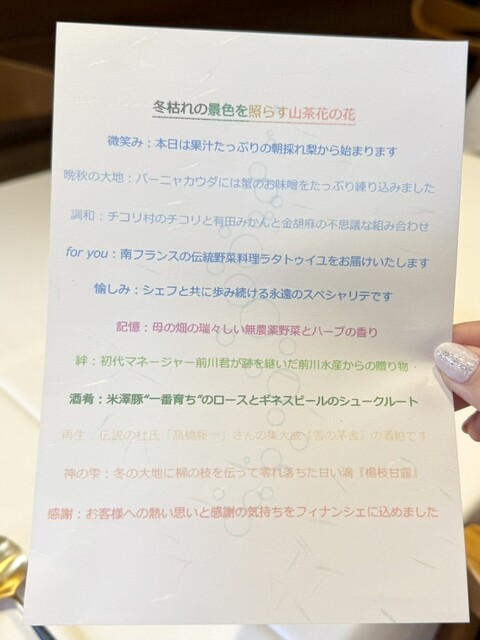 冬枯れの景色を照らす山茶花の花
微笑み：本日は果汁たっぷりの朝採れ梨から始まります
晩秋の大地：バーニャカウダには蟹のお味噌をたっぷり練り込みました
調和：チコリ村のチコリと有田みかんと金胡麻の不思議な組み合わせ
for you：南フランスの伝統野菜料理ラタトゥイユをお届けいたします
愉しみ：シェフと共に歩み続ける永遠のスペシャリテです
記憶：母の畑の瑞々しい無農薬野菜とハーブの香り
絆：初代マネージャー前川君が跡を継いだ前川水産からの贈り物・
酒肴：米澤豚“一番育ち”のロースとギネスビールのシュークルート
再生：伝説の杜氏「高橋藤一」さんの集大成『雪の茅舎』の酒粕です
神の雫：冬の大地に柳の枝を伝って零れ落ちた甘い滴『楊枝甘露』
感謝：お客様への熱い思いと感謝の気持ちをフィナンシェに込めました